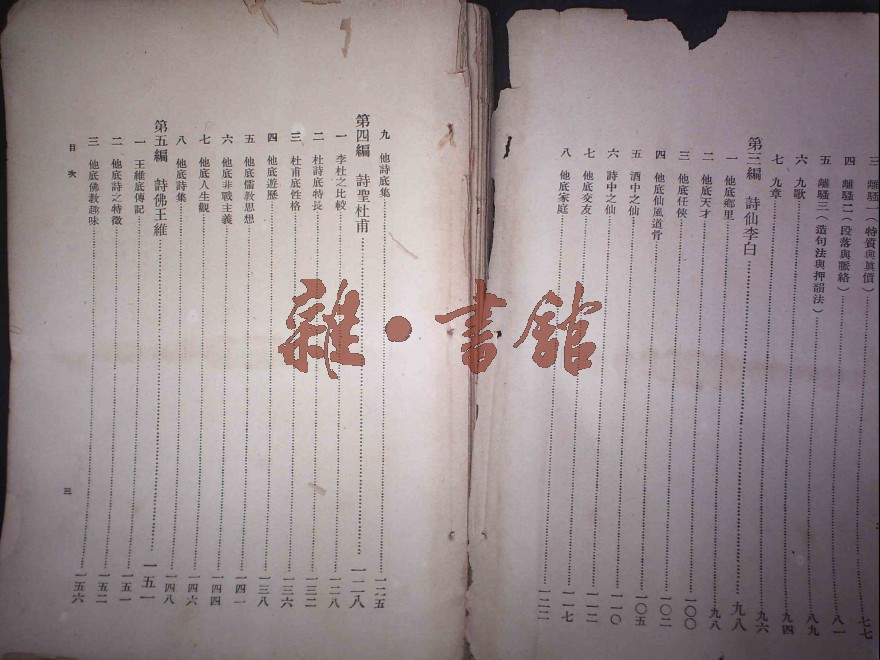 三 離騷一(特質與眞價)……七七
四 離騷二(段落與脈絡)……八一
五 離騷三(造句法與押韻法)……八九
六 九歌……九四
七 九章……九六
第三編 詩仙李白……九八
一 他底鄉里……九八
二 他底天才……一〇〇
三 他底任俠……一〇二
四 他底仙風道骨……一〇五
五 酒中之仙……一一〇
六 詩中之仙……一一二
七 他底交友……一一七
八 他底家庭……一二二
九 他詩底集……一二五
第四編 詩聖杜甫……一二八
一 李杜之比較……一二八
二 杜詩底特長……一三二
三 杜甫底性格……一三六
四 他底遊歷……一三八
五 他底儒敎思想……一四一
六 他底非戰主義……一四四
七 他底人生觀……一四六
八 他底詩集……一四八
第五編 詩佛王維……一五一
一 王維底傳記……一五一
二 他底詩之特徵……一五二
三 他底佛敎趣味……一五六
目次 三
雜·書館